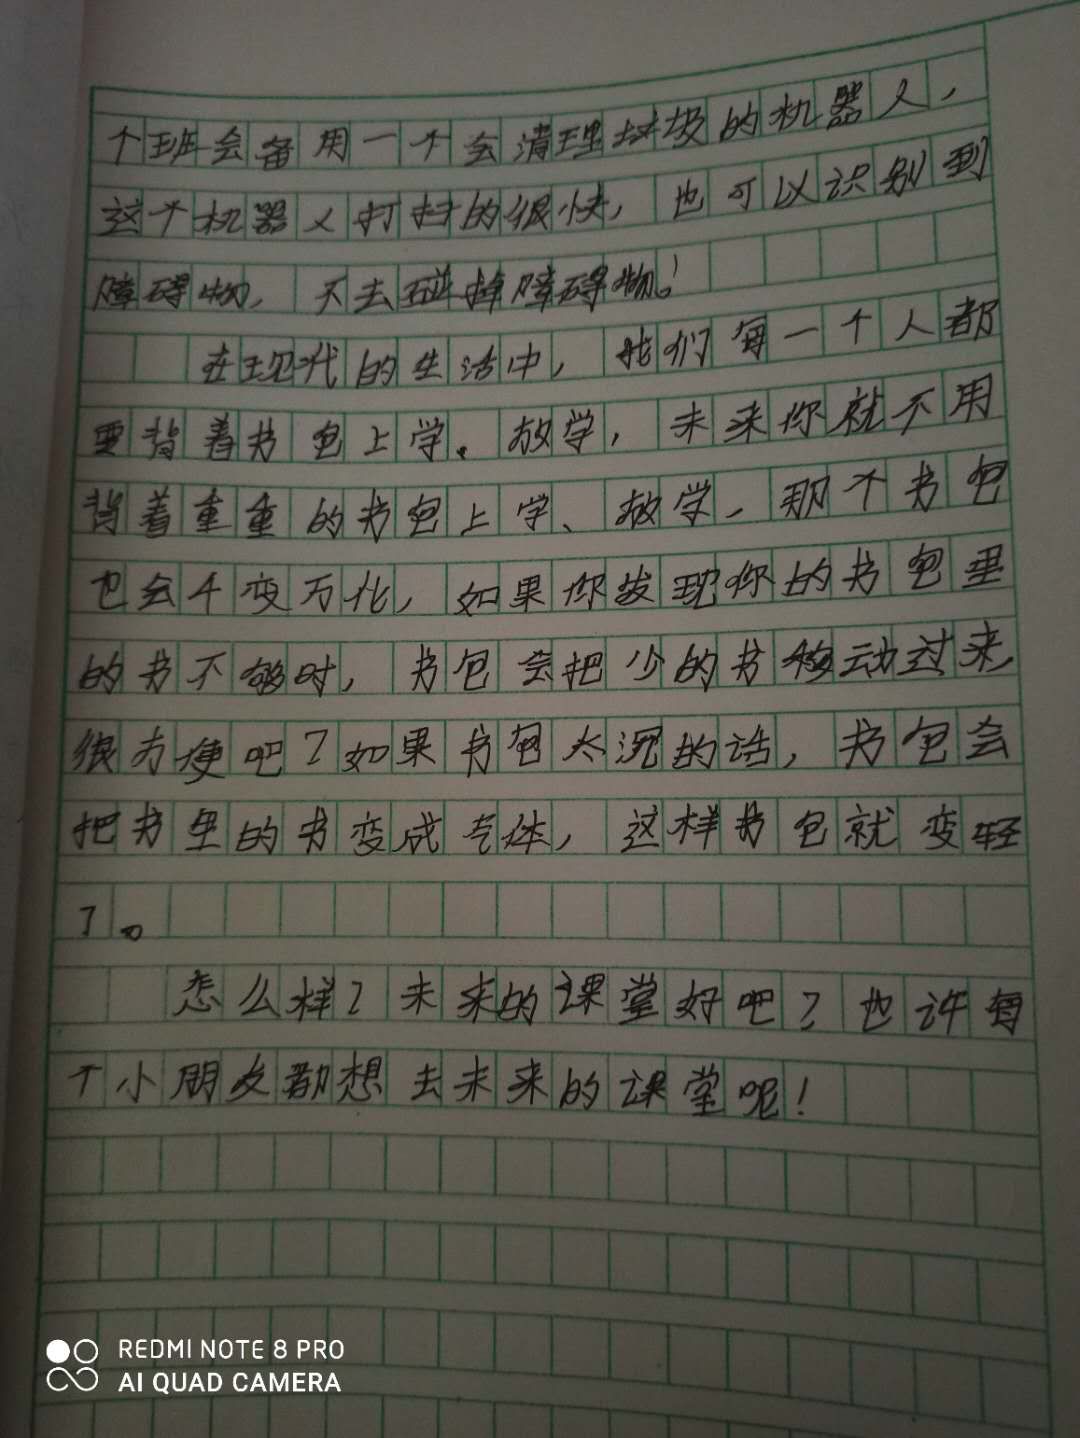 个班会备用一个会清理垃圾的机器人,
这个机器人打扫的很快,也可以识别到
障碍物,不去碰掉障碍物!
在现代的生活中,我们每一个人都
要背着书包上学、放学,未来你就不用
背着重重的书包上学、放学,那个书包
也会千变万化,如果你发现你的书包里
的书不够时,书包会把少的书移动过来,
很方便吧?如果书包太沉的话,书包会
把书里的书变成气体,这样书包就变轻
了。
怎么样?未来的课堂好吧?也许每
个小朋友都想去未来的课堂呢!
REDMI NOTE 8 PRO
AI QUAD CAMERA